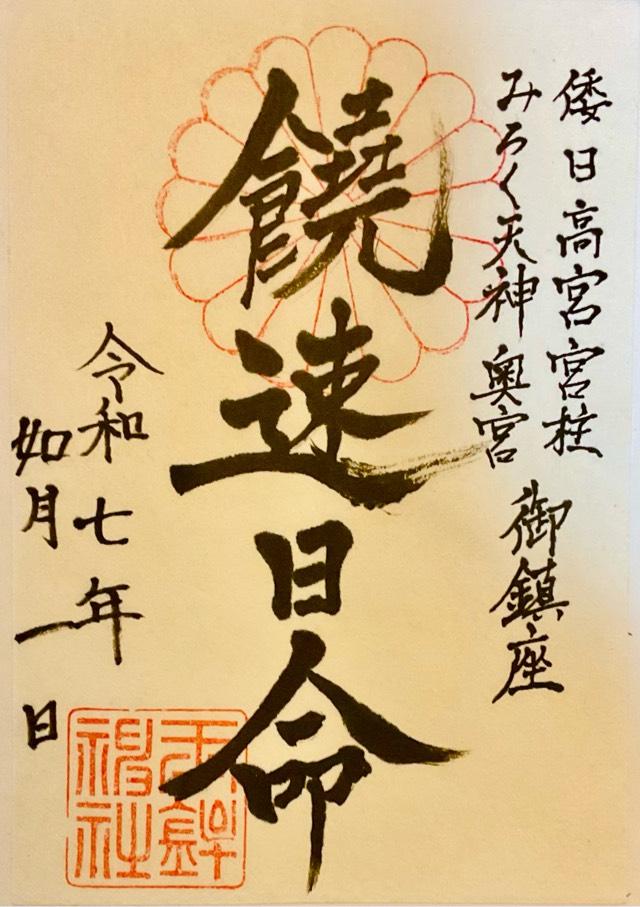 倭日高宮宮柱
みろく天神奥宮
御鎮座
饒速日命
令和七年
如月一日